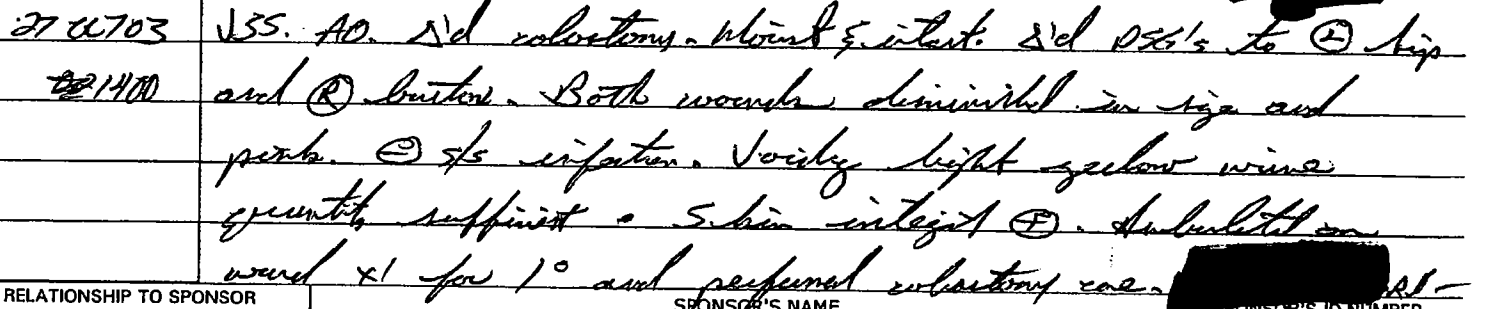 27 Oct 03 VSS. AO. Δ'd colostomy. Moist & intact. Δ'd DSG's to Ⓛ hip
1400 and Ⓡ buttock. Both wounds diminished in size and
pink. ⊖ s/s infection. Voiding light yellow urine
quantity sufficient. Skin integrity ⊕. Ambulated on
ward x1 for 1° and performed colostomy care.
RELATIONSHIP TO SPONSOR SPONSOR'S NAME SPONSOR'S ID NUMBER